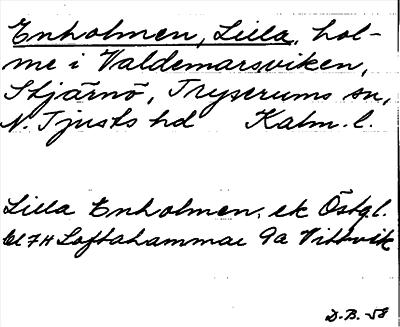 Enholmen, Lilla, hol-
me i Valdemarsviken,
Stjärnö, Tryserums sn,
N. Tjusts hd Kalm. l.
Lilla Enholmen, ek Östgl.
bl 7H Loftahammar 9a Vittvik
D.B. -58